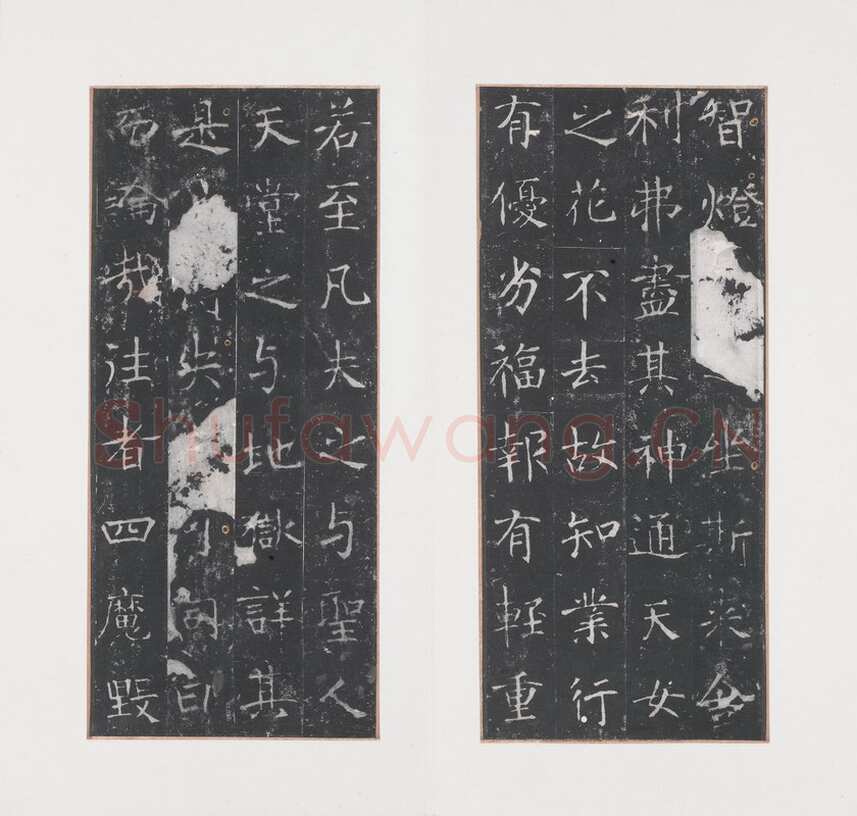 智燈坐斯來舍
利弗盡其神通天女
之花不去故知業行
有優劣福報有輕重
若至凡夫之与聖人
天堂之与地獄詳其
是失可同日
而論哉往者四魔毀
Shufawang.CN